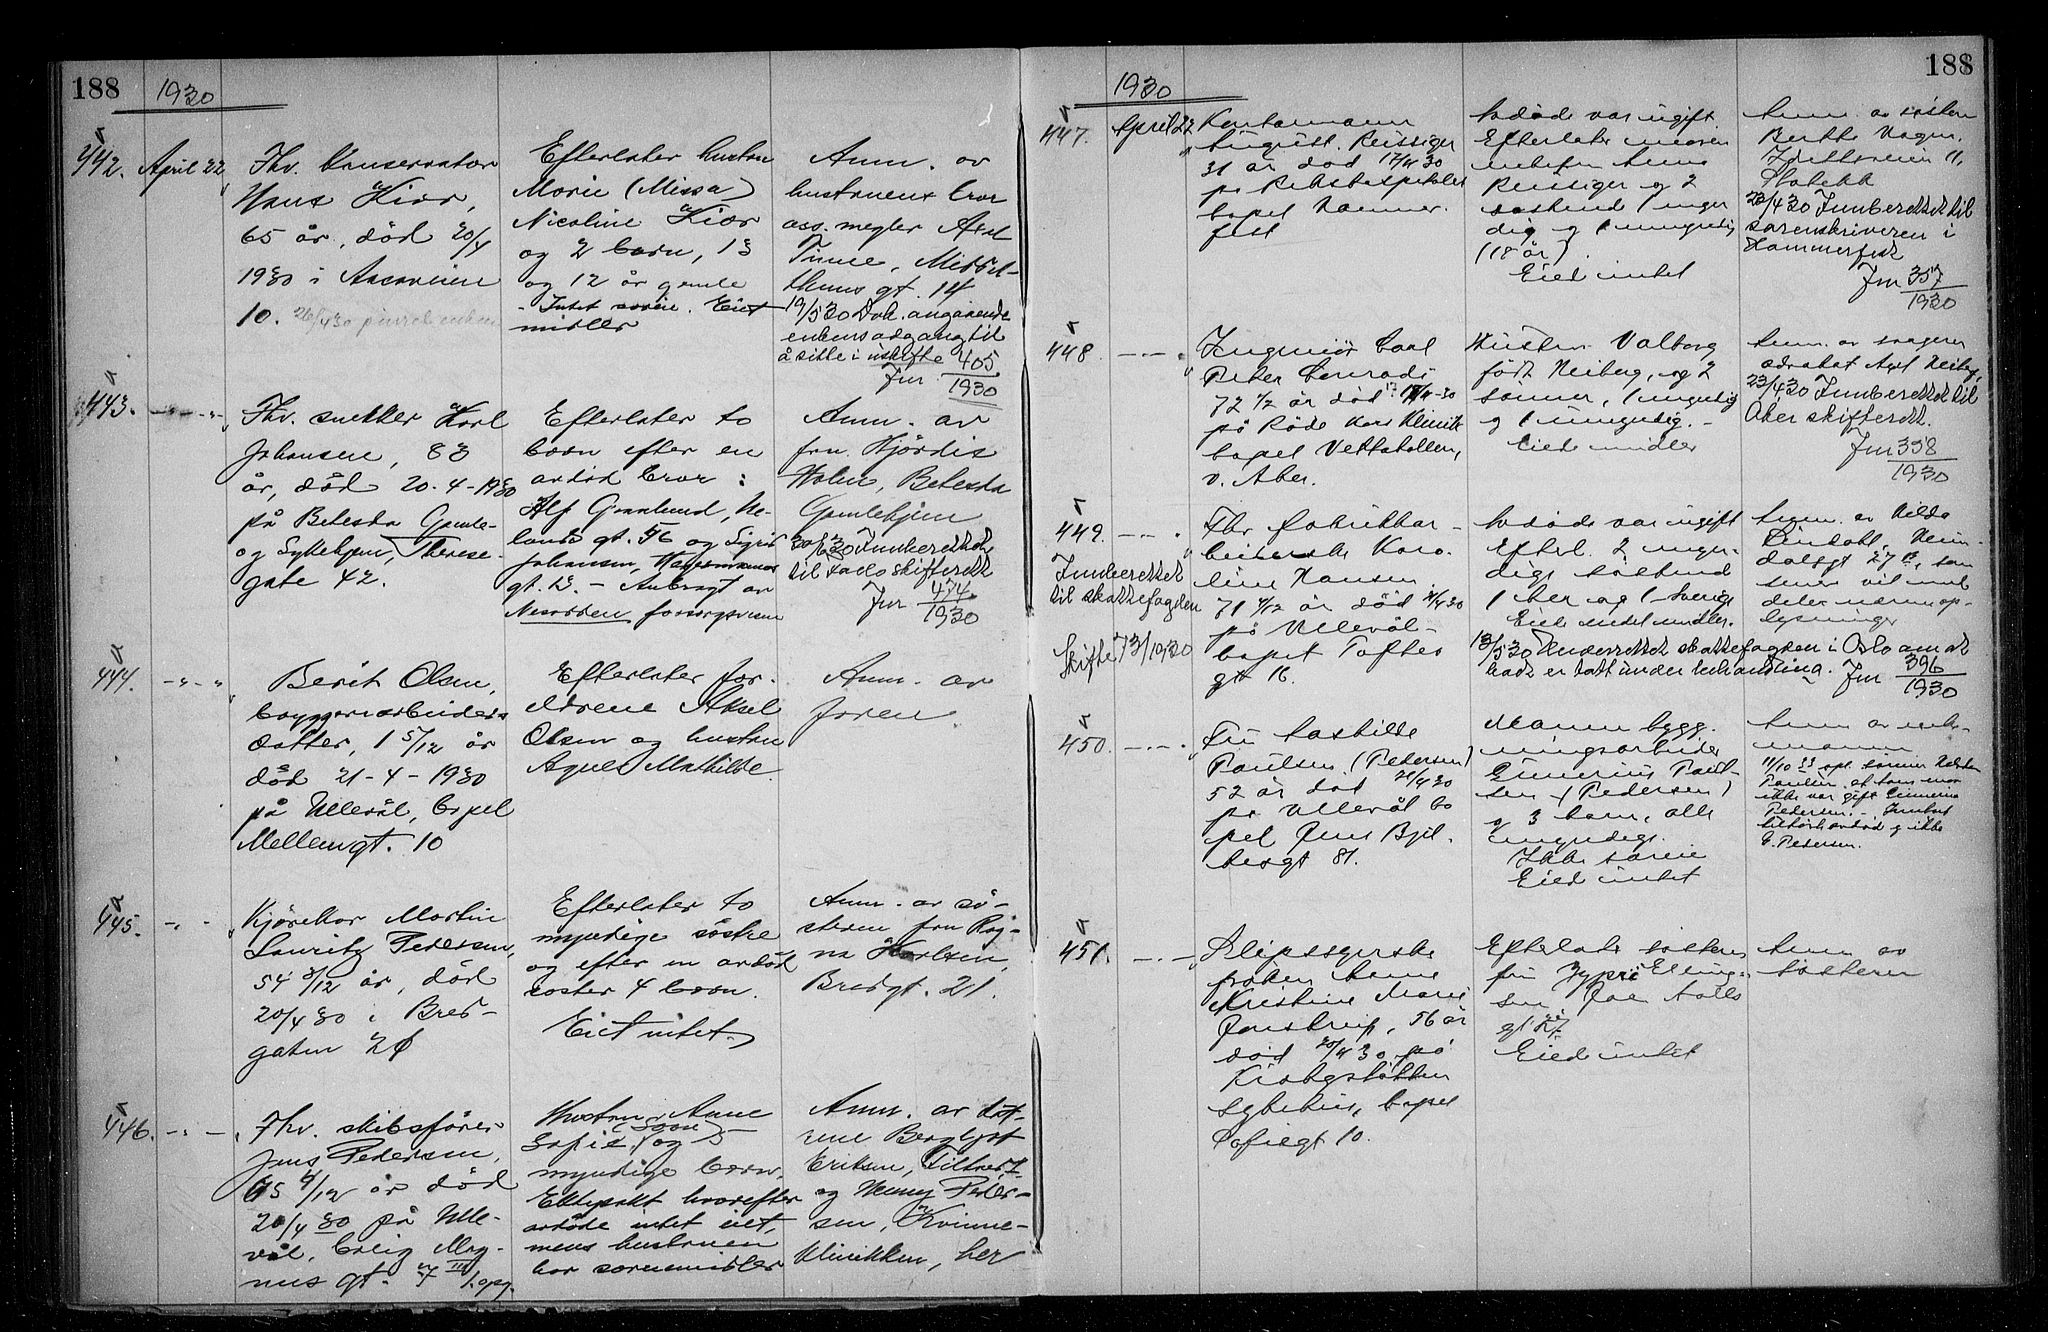 188
1930
442. April 22
Fhv. konservator
Hans Kiær,
65 år, død 20/4
1930 i Ascaveien
10.
Efterlater hustru
Marie (Missa)
Nicoline Kiær
og 2 barn, 13
og 12 år gamle
- Intet særeie. Eiet
midler
Anm. av
hustruens bror
ass. megler Axel
Tinne, Middel-
thuns gt. 14
19/5 30 Dok. angående
enkens adgang til
å sitte i uskifte
Jnr. 405/1930
443. - " - " -
Fhv. snekker Karl
Johansen, 83
år, død 20-4-1930
på Betesda Gamle-
og Sykehjem, Therese-
gate 42.
Efterlater to
barn efter en
avdød bror:
Alf Grønlund, He-
lands gt. 56 og Sigrid
Johansen,
gt. 13 - Anbragt av
Nesodden forsorgsvesen
Anm. av
frk. Hjørdis
Holen, Betesda
Gamlehjem
30/6 30 Innberettet
til skifterett
Jnr 474/1930
444. - " - "
Berit Olsen,
byggeriarbeider-
datter, 1 5/12 år
død 21-4-1930
på Ullevål, bopel
Mellemgt. 10
Efterlater for-
eldrene Aksel
Olsen og hustru
Agnes Mathilde.
Anm. av
faren.
445. - " -
Kjørekar Martin
Lauritz Pedersen,
54 3/12 år, død
20/4 30 i Bred-
gaten 20
Efterlater to
myndige søstre
og efter en avdød
søster 4 barn.
Eiet intet.
Anm. av sø-
steren fru Rag-
na Karlsen,
Bredgt. 21.
446. - " -
Fhv. skibsfører
Jens Pedersen,
75 4/12 år død
20/4 30 på Ulle-
vål, bolig Mag-
nus gt. 7 III 1. opg.
Hustru Anne
Sofie, og 5
myndige barn.
Ektepakt hvorefter
avdøde intet eiet,
mens hustruen
har særmidler
Anm. av døt-
rene Bergljot
Eriksen,
og Henny Peder-
sen, Kvinne-
klinikken, her
188
1930
447. April 22
Kontormann
August Reissiger
31 år død 17/4 30
på Rikshospitalet
bopel Hammer-
fest
Avdøde var ugift
Efterlater moren
enkefru Anna
Reissiger og 2
søskend 1 myn-
dig og 1 umyndig
(18 år)
Eied intet
Anm. av søsteren
Berthe Vagen,
11,
Slatebk
23/4 30 Innberettet til
sorenskriveren i
Hammerfest
Jnr 357/1930
448. - " -
Ingeniør Carl
Peter Conradi
72 1/2 år død 17/4-30
på Røde Kors Klinik
bopel Vettakollen,
V. Aker.
Hustru Valborg
født Heiberg, og 2
sønner, 1 myndig
og 1 umyndig. -
Eied midler
Anm. av svogeren
advokat Axel Heiberg,
23/4 30 Innberettet til
Aker skifterett.
Jnr 358/1930
449. - " -
Innberettet
til skattefogden
Skifte 73/1930
Fhv fabrikkar-
beiderske Karo-
line Hansen
71 4/12 år død 21/4 30
på Ullevål -
bopel Toftes
gt 16.
Avdøde var ugift
Efterl. 2 myn-
dige søskend
1 her og 1 Sverige
Eied endel midler.
Anm. av Hilda
Lindahl, Heim-
dalsgt 27 B, som
senere vil med-
dele nærmere op-
lysninger
13/5 30 Underrettet skattefogden i Oslo om at
boet er tatt under behandling.
Jnr 396/1930
450. - " -
Fru Mathilde
Paulsen (Pedersen)
52 år død 21/4 30
på Ullevål bo
pel Jens Bjel-
kesgt 81.
Mannen bygg-
ningsarbeider
Einerius Paul-
sen (Pedersen)
og 3 barn, alle
umyndige.
Ikke særeie
Eied intet
Anm. av enke-
mannen
11/10 33 opl. sønnen
Paulsen, at hans mor
ikke var gift Einerius
Pedersen. Innboet
tilhørte avdød og ikke
E. Pedersen.
451. - " -
Slipssyerske
frøken Anne
Kristine Marie
Jonstrup, 56 år
død 20/4 30 på
Krohgstøtten
sykehus, bopel
Sofiegt 10.
Efterlater søsteren
fru Elling-
sen Jac Aalls
gt 27
Eied intet
Anm. av
søsteren